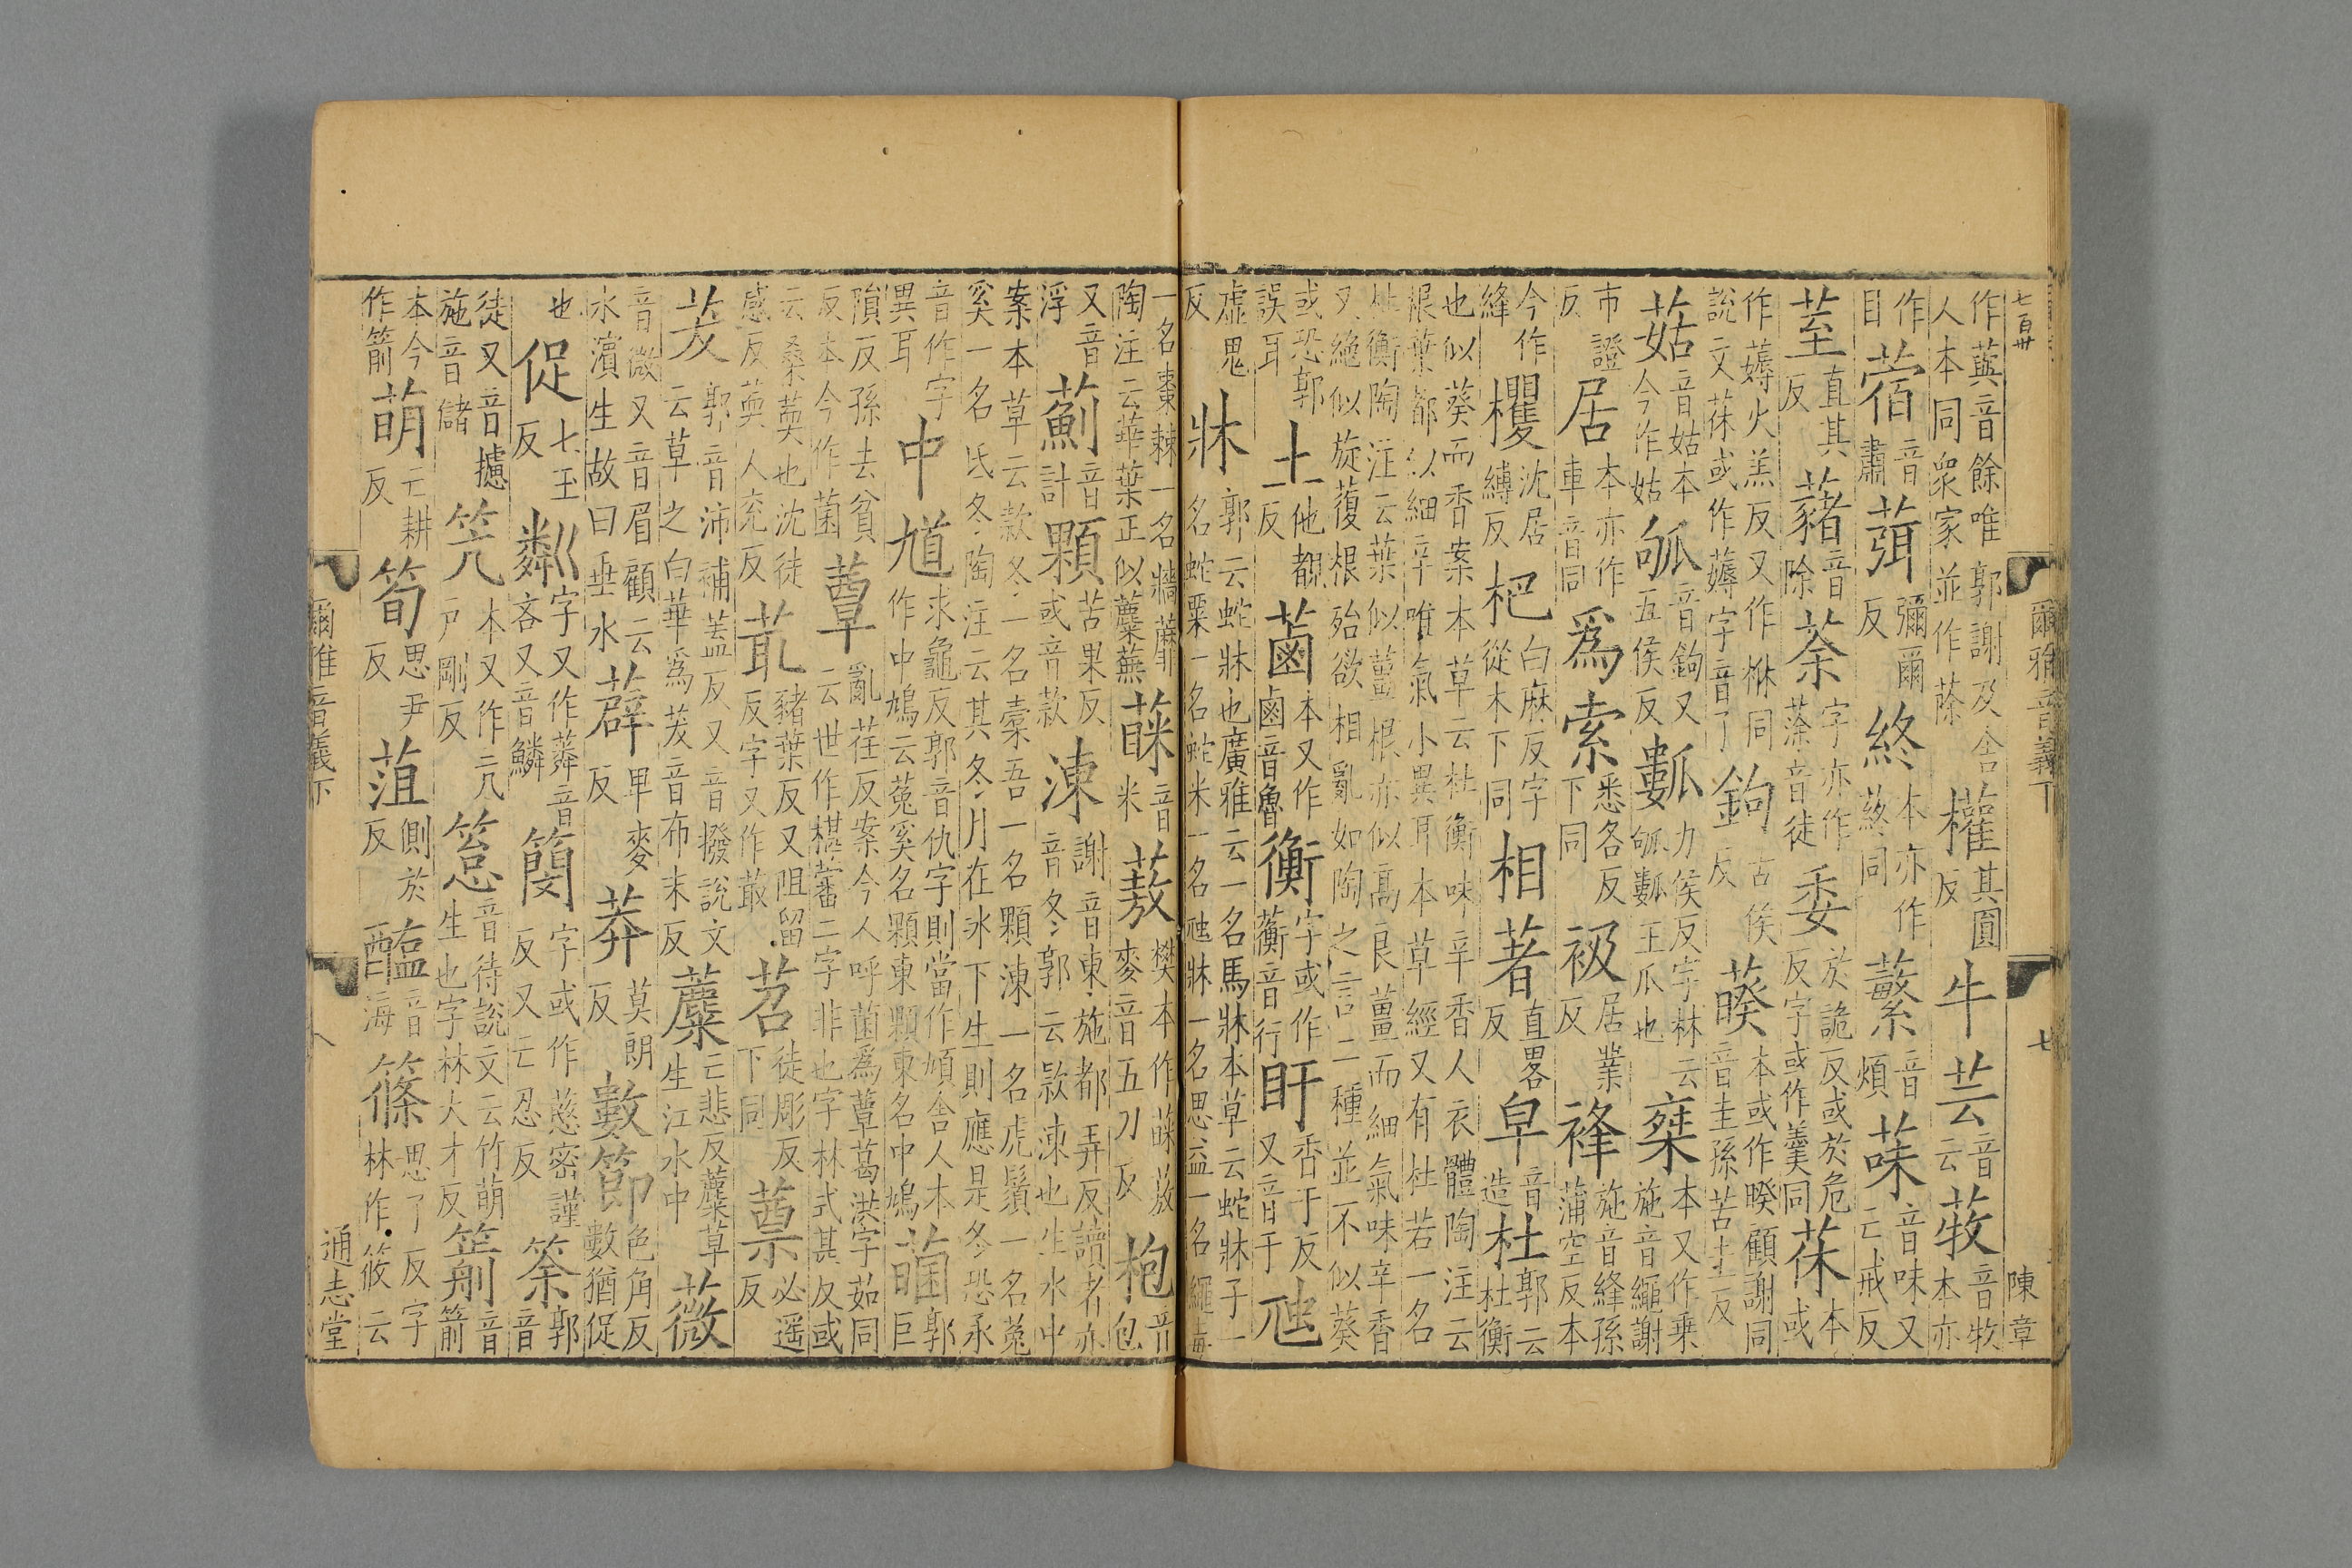 七百卅
爾雅音義下
七
陳章
作藇音餘唯郭謝及舍人本同衆家並作蒢 權其圓反 牛芸音云 蓩音牧本亦
作目 蓿音肅 葞彌爾反 終本亦作蔠同 蘩音煩 菋音味又亡戒反
荎直其反 藸音除 荼字亦作蒤音徒 委於詭反或於危反字或作萎同 茠本或
作薅火羔反又作㭒同說文茠或作薅字音了 鉤古侯反 藈本或作睽顧謝同音圭孫苦圭反
菇音姑本今作姑 瓠音鉤又五侯反 㼖力侯反字林云瓠㼖王瓜也 椉本又作乘施音繩謝
市證反 居本亦作車音同 爲 索悉各反下同 衱居業反 袶施音縫孫蒲空反本
今作縫 欔沈居縛反 杷白麻反字從木下同 相 著直畧反 皁音造 杜郭云杜衡
也似葵而香案本草云杜衡味辛香人衣體陶注云根葉都似細辛唯氣小異耳本草經又有杜若一名
杜衡陶注云葉似薑根亦似高良薑而細氣味辛香又絕似旋葍根殆欲相亂如陶之言二種並不似葵
或恐郭誤耳 土他覩反 蓾本又作鹵音魯 衡字或作蘅音行 盱香于反又音于 虺
虛鬼反 牀郭云蛇牀也廣雅云一名馬牀本草云蛇牀子一名蛇粟一名蛇米一名虺牀一名思益一名繩毒
一名棗棘一名牆蘼陶注云華葉正似蘪蕪 蔝音米 蔜樊本作䔲蔜麥音五刀反 枹音包
又音浮 薊音計 顆苦果反或音款 涷謝音東施都弄反讀者亦音冬郭云款涷也生水中
案本草云款冬一名橐吾一名顆涷一名虎鬚一名菟奚一名氐冬陶注云其冬月在氷下生則應是冬恐承
音作字異耳 中 馗求龜反郭音仇字則當作頄舍人本作中鳩云菟奚名顆東顆東名中鳩 菌郭巨
隕反孫去貧反本今作菌 蕈亂荏反案今人呼菌爲蕈葛洪字茹同云世作椹蕈二字非也字林式甚反或
云桑萸也沈徒感反萸人兗反 菆豬葉反又阻留反字又作菆 苕徒彫反下同 蔈必遥反
茇郭音沛補蓋反又音撥說文云草之白華爲茇音布末反 蘪亡悲反蘪草生江水中 薇
音微又音眉顧云水濱生故曰垂水 薜卑麥反 莽莫朗反 數節色角反數猶促
也 促七玉反 粼字又作䉮音吝又音鱗 簢字或作慈密謹反又亡忍反 筡郭音
徒又音攄施音儲 笐本又作亢戶剛反 箈音待說文云竹萌生也字林大才反 箭音箭
本今作箭 萌亡耕反 筍思尹反 菹側於反 醢音海 篠思了反字林作筱云
爾雅音義下
八
通志堂